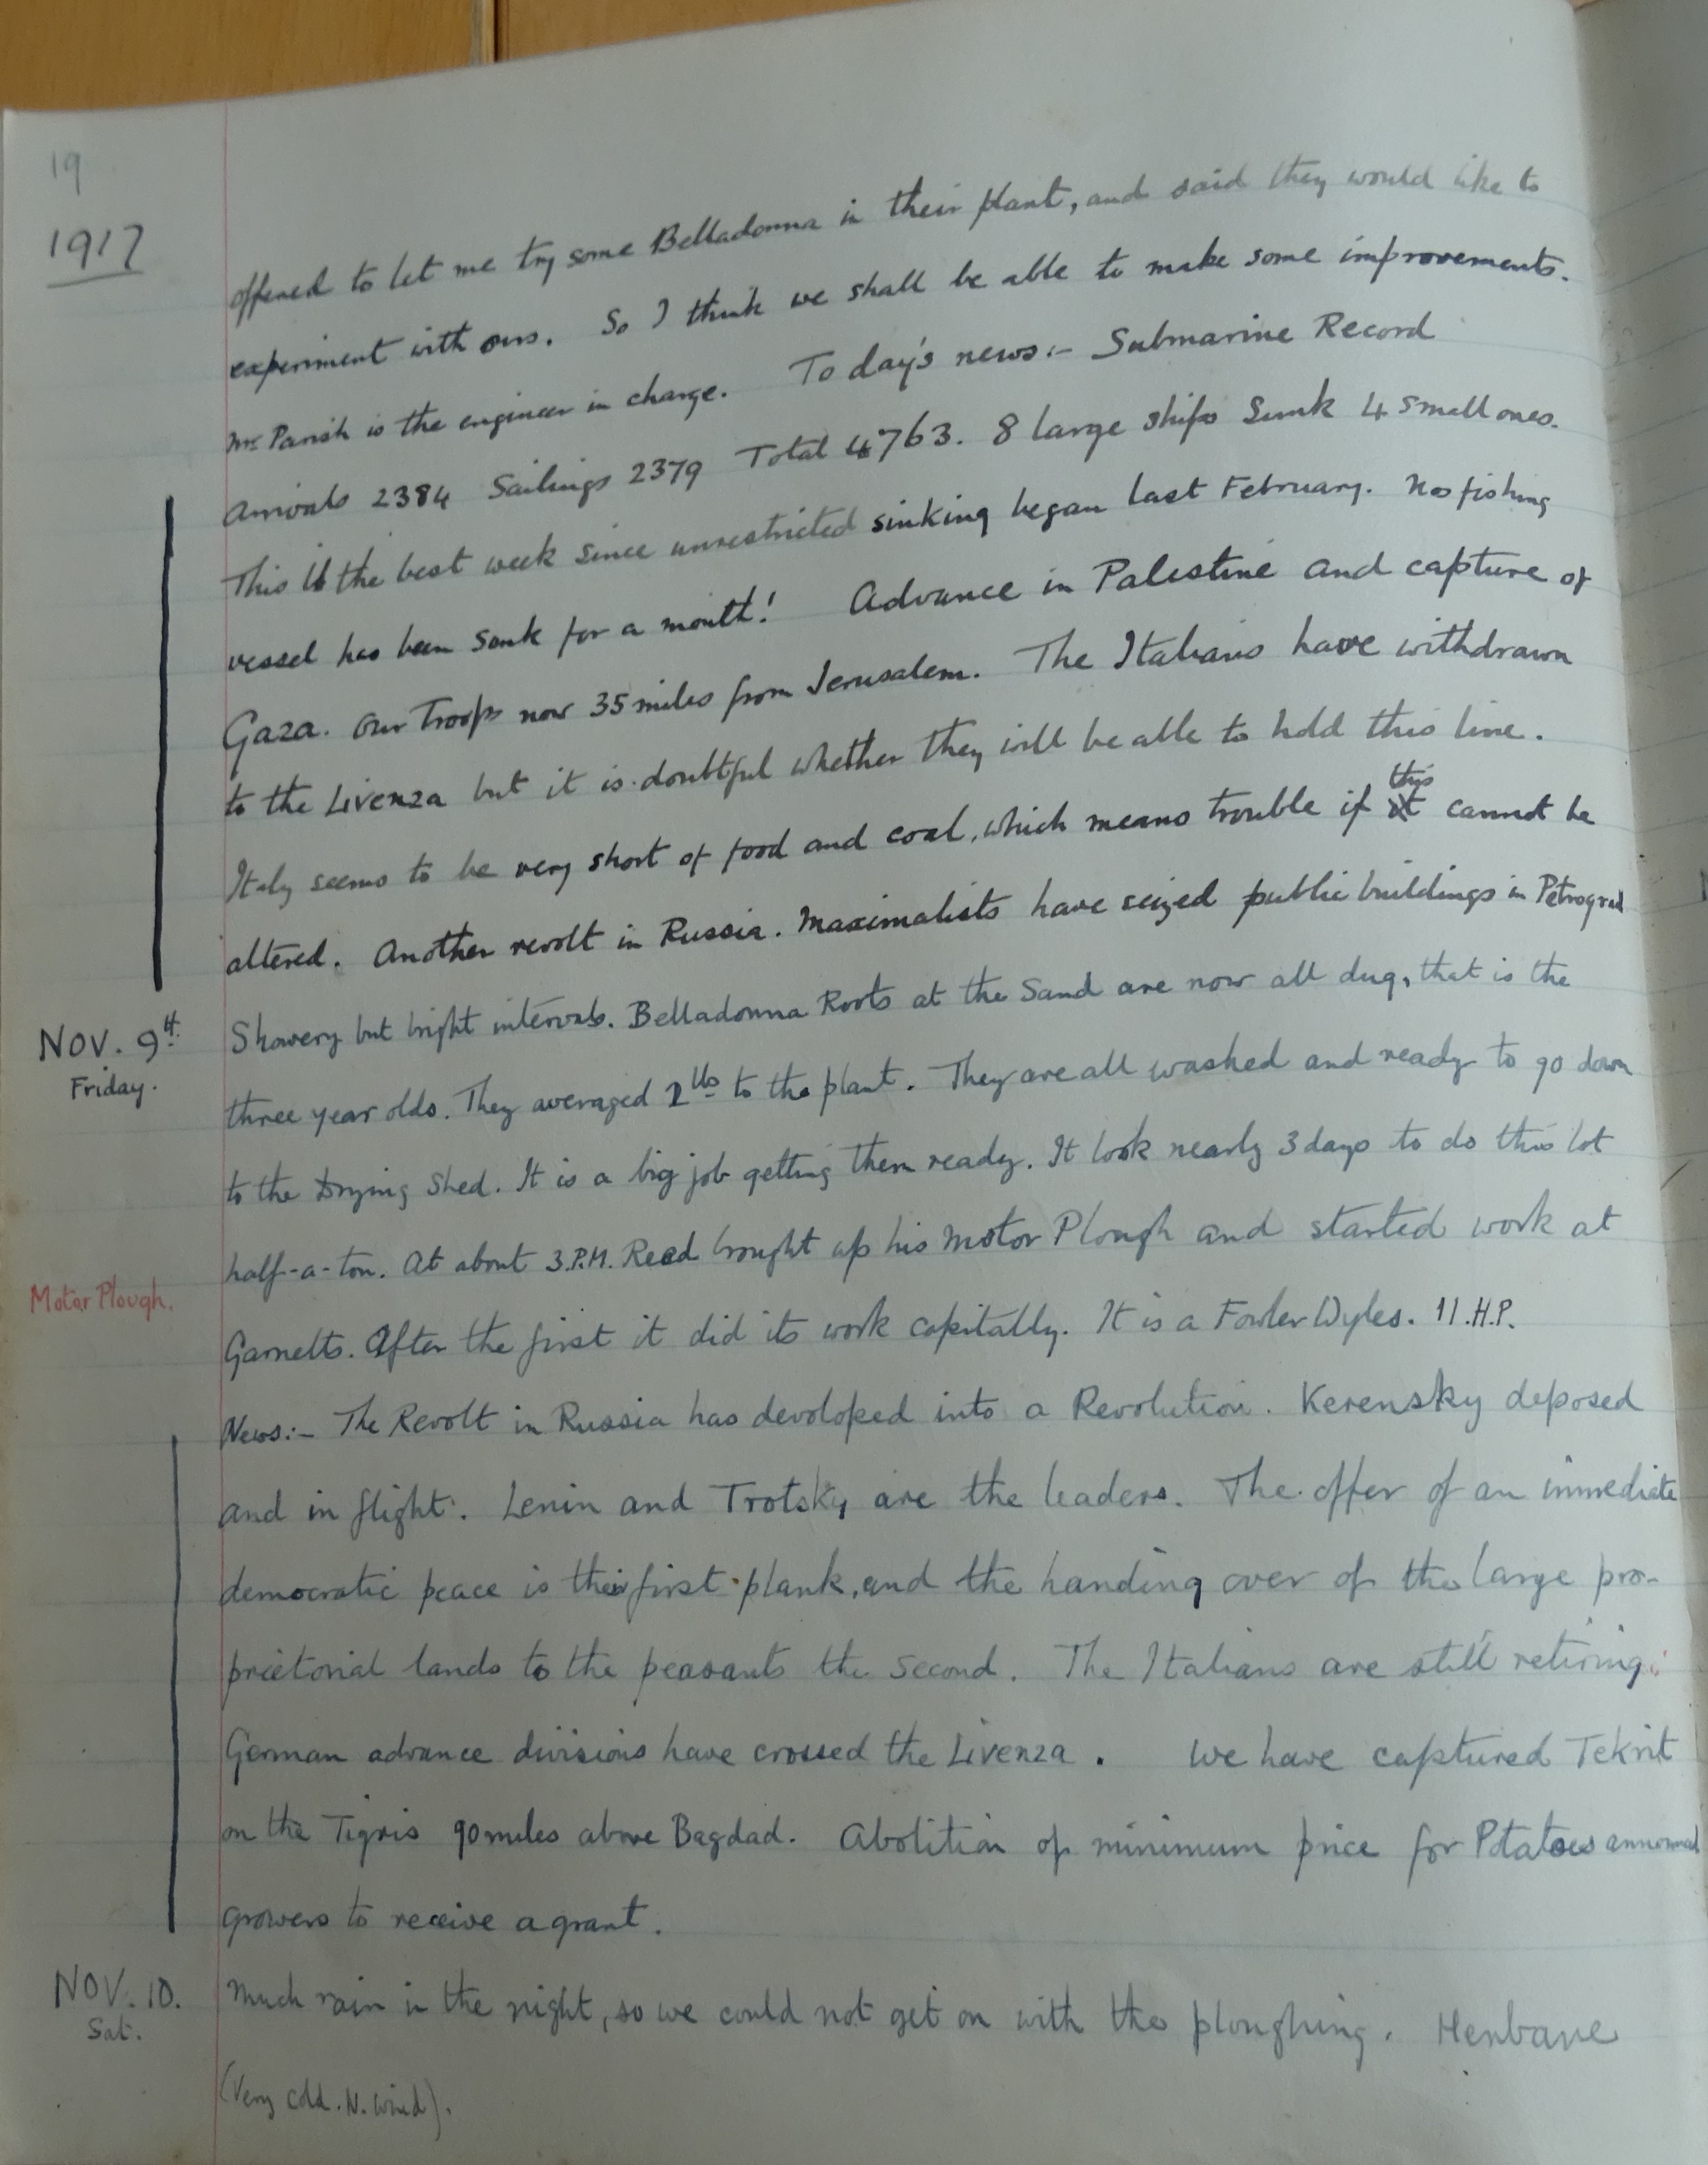 19
1917
offered to let me try some Belladonna in their plant, and said they would like to
experiment with ours. So I think we shall be able to make some improvements.
Mr. Parish is the engineer in charge. To day's news:- Submarine Record
Arrivals 2384 Sailings 2379 Total 4763. 8 large ships Sunk 4 small ones.
This is the best week since unrestricted sinking began last February. No fishing
vessel has been sunk for a month! Advance in Palestine and capture of
Gaza. Our Troops now 35 miles from Jerusalem. The Italians have withdrawn
to the Livenza but it is doubtful whether they will be able to hold this line.
Italy seems to be very short of food and coal, which means trouble if this cannot be
altered. Another revolt in Russia. Maximalists have seized public buildings in Petrograd
NOV. 9th Showery but bright intervals. Belladonna Roots at the Sand are now all dug, that is the
Friday. three year olds. They averaged 2 lbs to the plant. They are all washed and ready to go down
to the Drying Shed. It is a big job getting them ready. It took nearly 3 days to do this lot
half-a-ton. At about 3.P.M. Read brought up his Motor Plough and started work at
Motor Plough. Garnetts. After the first it did its work capitally. It is a Fowler Wyles. 11.H.P.
News:- The Revolt in Russia has devoloped into a Revolution. Kerensky deposed
and in flight. Lenin and Trotsky are the leaders. The offer of an immediate
democratic peace is their first plank, and the handing over of the large pro-
prietorial lands to the peasants the second. The Italians are still retiring.
German advance divisions have crossed the Livenza. We have captured Tekrit
on the Tigris 90 miles above Bagdad. Abolition of minimum price for Potatoes announced
growers to receive a grant.
NOV. 10. Much rain in the night, so we could not get on with the ploughing. Henbane
Sat.
(Very cold. N. wind).